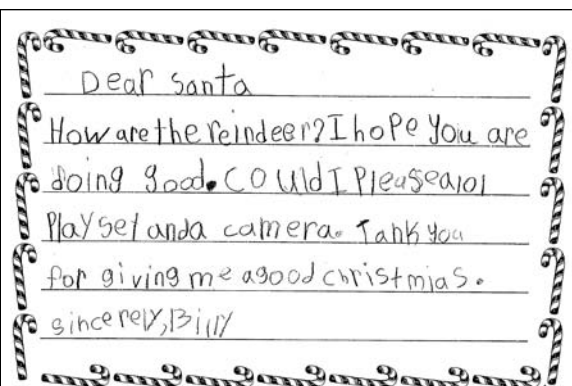 Dear santa
How are the reindeer? I hope you are
doing good. COUld I Pleasea 101
Playset anda camera. Tank you
for giving me a good christmias.
sincerely, Billy